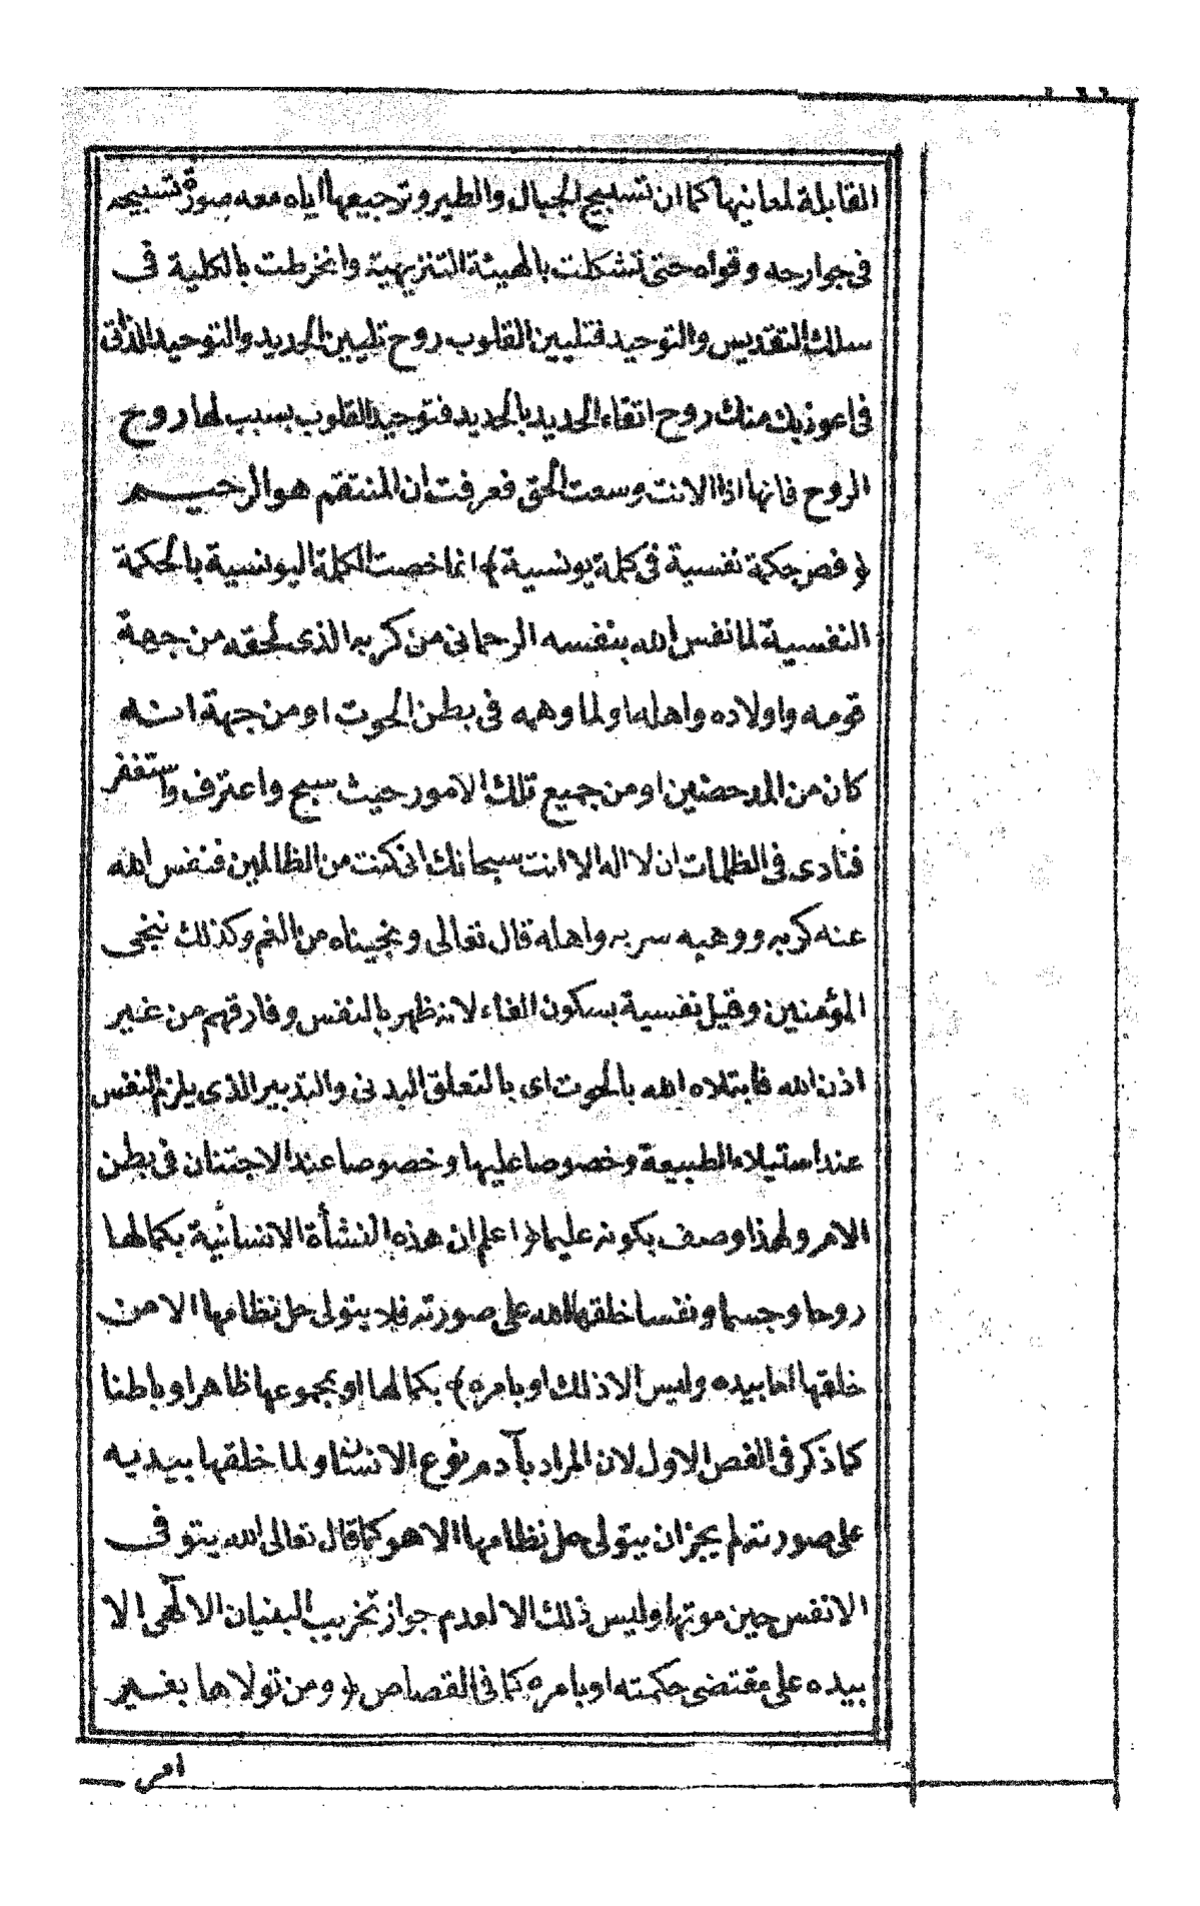 القابلة لمعانيها كما ان تسبيح الجبال والطير وترجيعها اياه معه صورة تسبيحه
فى جوارحه وقواه حتى تشكلت بالهيئة التنزيهية وانخرطت بالكلية فى
سلك التقديس والتوحيد فتليين القلوب روح تليين الحديد والتوحيد الذاتى
فى اعوذ بك منك روح اتقاء الحديد بالحديد فتوحيد القلوب بسبب لها روح
الروح فانها اذا الانت وسعت الحق فعرفت ان المنتقم هو الرحيم
﴿ فص حكمة نفسية فى كلمة يونسية ﴾ انما خصت الكلمة اليونسية بالحكمة
النفسية لما نفس الله بنفسه الرحمانى من كربه الذى لحقه من جهة
قومه واولاده واهله او لما وهمه فى بطن الحوت او من جهة انه
كان من المدحضين او من جميع تلك الامور حيث سبح واعترف واستغفر
فنادى فى الظلمات ان لا اله الا انت سبحانك انى كنت من الظالمين فنفس الله
عنه كربه ووهبه سربه واهله قال تعالى ونجيناه من الغم وكذلك ننجى
المؤمنين وقيل نفسية بسكون الفاء لانه ظهر بالنفس وفارقهم من غير
اذن الله فابتلاه الله بالحوت اى بالتعلق البدنى والتدبير الذى يلزم النفس
عند استيلاء الطبيعة وخصوصا عليها وخصوصا عند الاجتنان فى بطن
الام ولهذا وصف بكونه عليما ﴿ اعلم ان هذه النشأة الانسانية بكمالها
روحا وجسما ونفسا خلقها الله على صورته فلا يتولى حل نظامها الا من
خلقها اما بيده وليس الا ذلك او بامره ﴾ بكمالها او بمجموعها ظاهرا وباطنا
كما ذكر فى الفص الاول لان المراد بآدم نوع الانسان ولما خلقها بيديه
على صورته لم يجز ان يتولى حل نظامها الا هو كما قال تعالى الله يتوفى
الانفس حين موتها وليس ذلك الا لعدم جواز تخريب البنيان الالٓهى الا
بيده على مقتضى حكمته او بامره كما فى القصاص ﴿ ومن تولاها بغير
امر